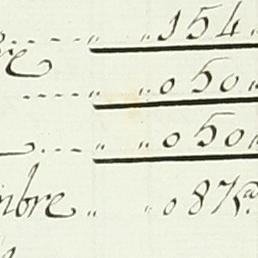 ..... „ „ 154 „
.... „ „ 050 „
... „ „ 050 „
mbre „ „ 087